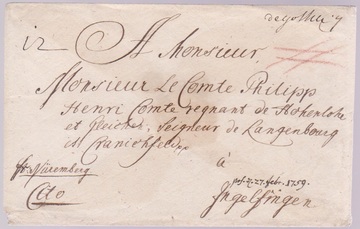 12
A Monsieur,
Monsieur Le Comte Philipp
Henri Comte regnant de Hohenlohe
et Gleichen, Seigneur de Langenbourg
et Cranichfeld
à
fr. Nuremberg
Cito
27. febr. 1759.
Ingelfingen